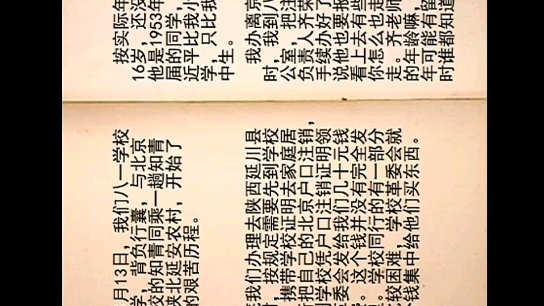 月13日，我们八一学校
学，背负行囊，与北京
校的知青同乘一趟知青
陕北延安农村，开始了
的艰苦历程。
我们办理去陕西延川县
按规定需要先到学校
，携带学校证明去家庭居
把自己的北京户口注销，
学校凭户口注销证明领
委会发给我们几十元钱
。这个钱并没有完全发
学校同行的有一部分
校困难，学校革委会就
钱集中给他们买东西。
按实际年
16岁，还没
他是1953年
届的同学，
近平比我小
学，只比我
中生。
我办离京
时，我到八
公室，把注
负责人齐荣
手续办好了
说他也要报
看上去
你怎么也走
走。齐老师
的年龄嘛，
年可能有留
时谁都知道